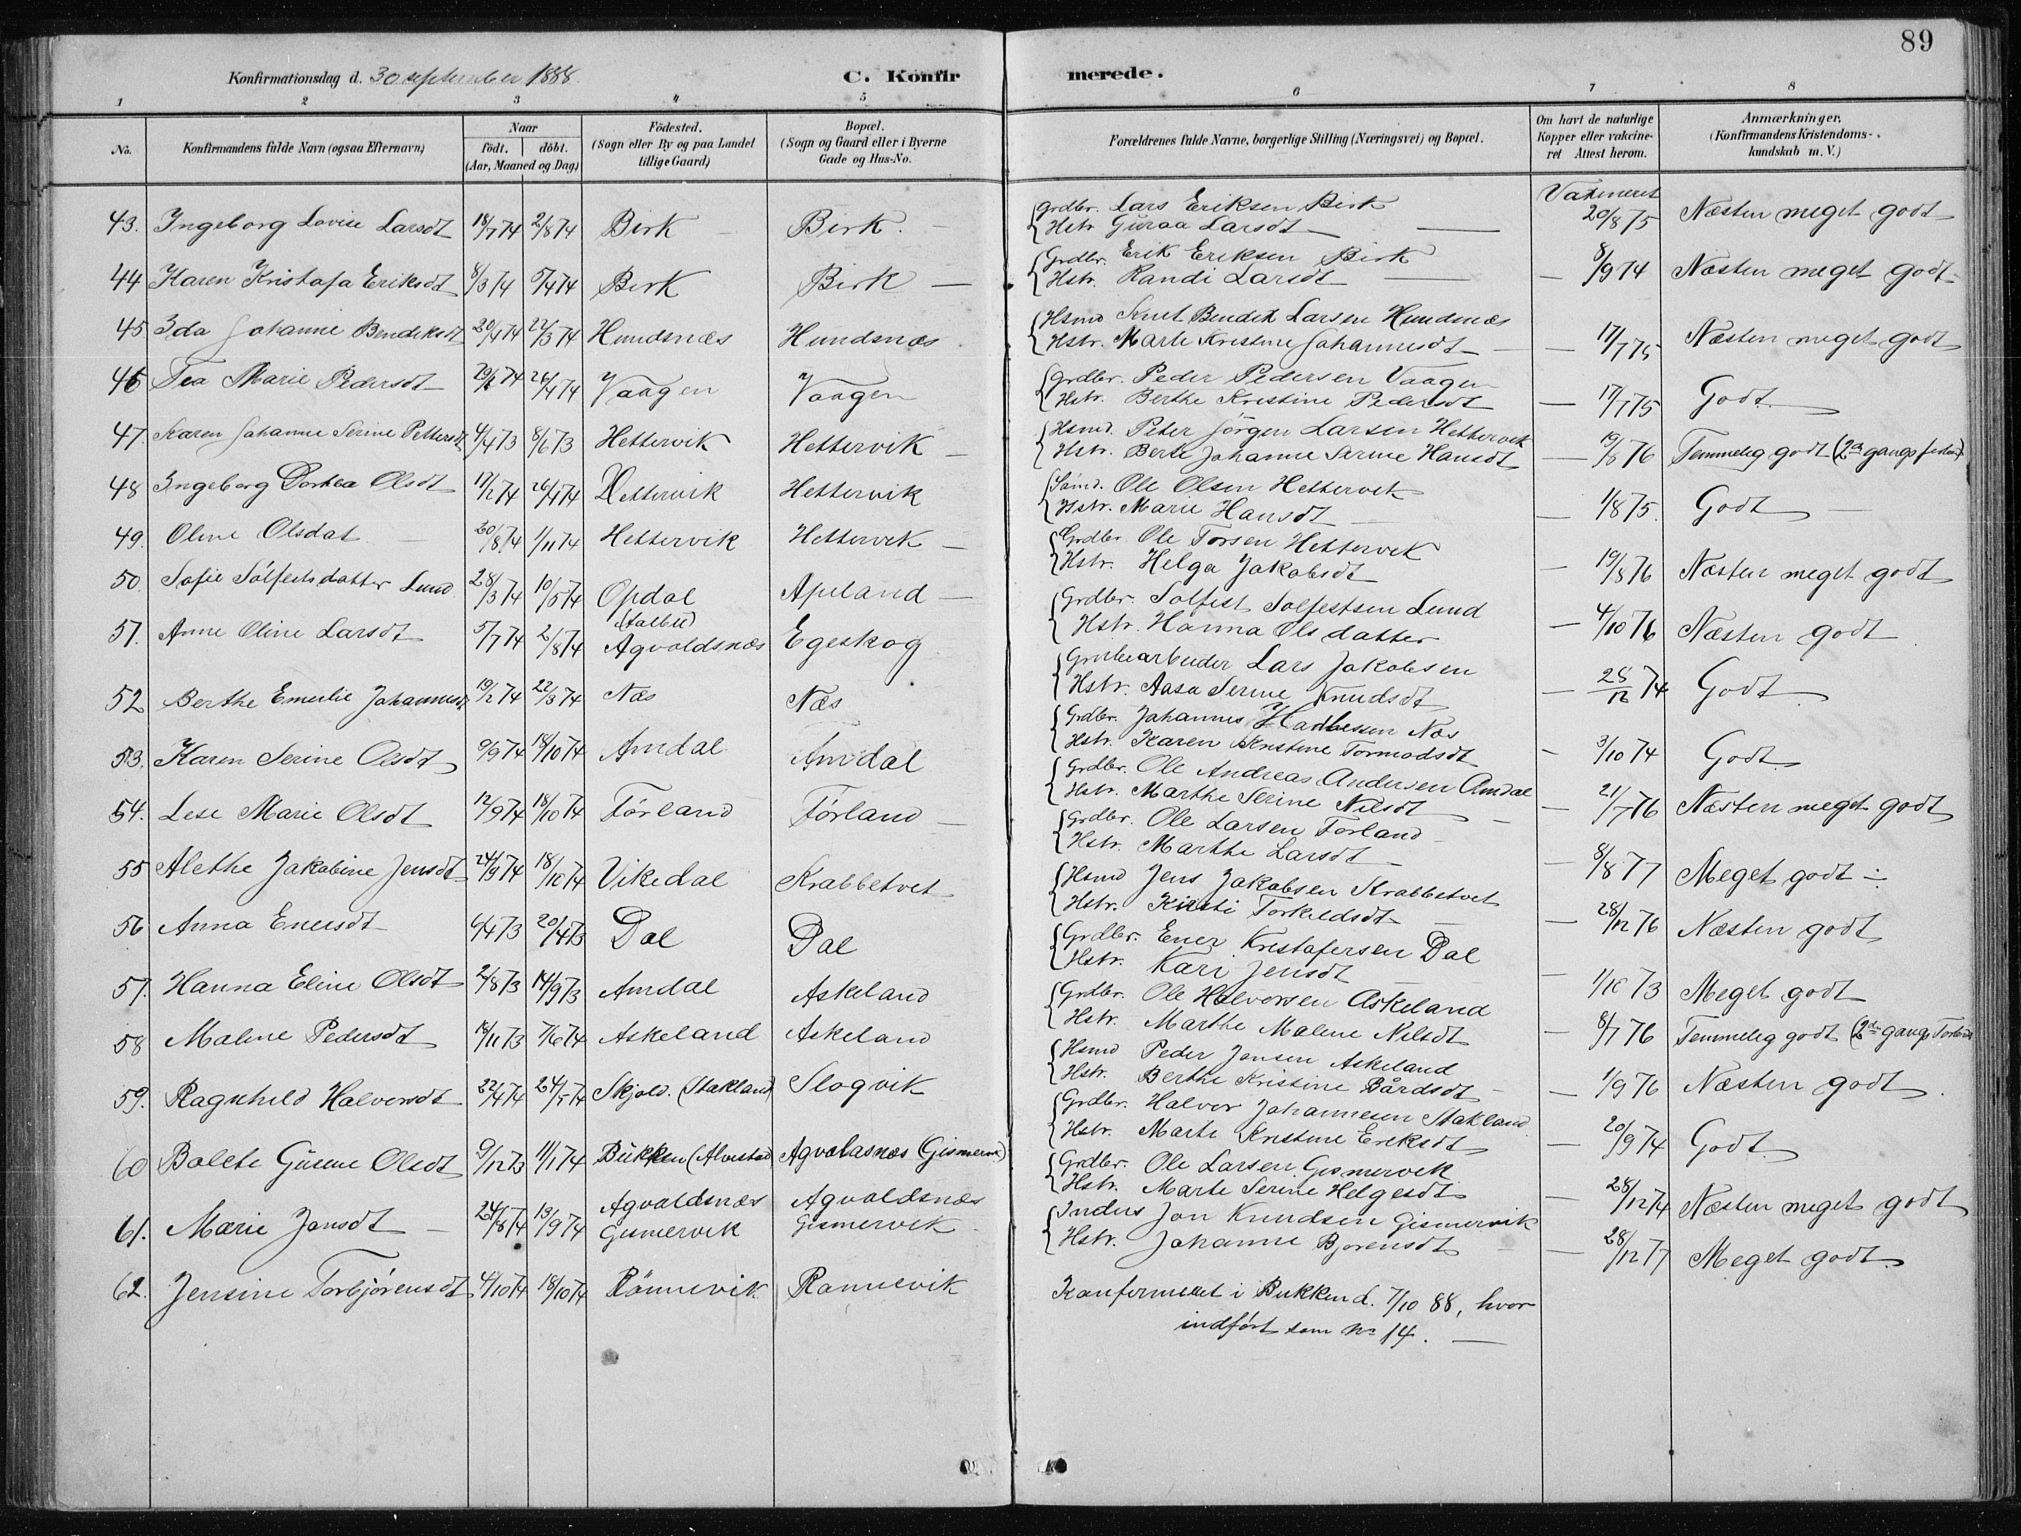 89
Konfirmationsdag d. 30 september 1888.
C. Konfirmerede.
1 2 3 4 5 6 7 8
No. Konfirmandens fulde Navn (ogsaa Efternavn) Naar født. døbt. (Aar, Maaned og Dag) Fødested. (Sogn eller By og paa Landet tillige Gaard) Bopæl. (Sogn og Gaard eller i Byerne Gade og Hus-No. Forældrenes fulde Navne, borgerlige Stilling (Næringsvei) og Bopæl. Om havt de naturlige Kopper eller vakcineret Attest herom. Anmærkninger. (Konfirmandens Kristendomskundskab m. V.)
Vakineret
43. Ingeborg Lovise Larsdt 18/7 74 2/8 74 Birk Birk. Grdbr. Lars Eriksen Birk 20/8 75 Næsten meget godt
Hstr Guraa Larsdt
44 Karen Kristofa Eriksdt 8/3 74 5/4 74 Birk Birk Grdbr. Erik Eriksen Birk 8/9 74 Næsten meget godt
Hstr. Randi Larsdt
45 Ida Johanne Bendiksdt 22/3 74 Hundsnæs Hundsnæs Hsmd Knut Bendik Larsen Hundsnæs 17/7 75 Næsten meget godt
Hstr. Marte Kristine Johannesdt
46 Tea Marie Pedersdt 26/4 74 Vaagen Vaagen Grdbr. Peder Pedersen Vaagen 17/7 75 Godt
Hstr. Berthe Kristine Pedersdt
47. Karen Johanne Serine Pettersdt 4/4 73 8/6 73 Hettervik Hettervik Hsmd. Peter Jørgen Larsen Hettervik Temmelig godt (2den gangs
Hstr. Berte Johanne Serine Hansdt
48 Ingeborg Dortea Olsdt 17/2 74 26/4 74 Hettervik Hettervik Ole Olsen Hettervik 1/8 75. Godt
Hstr. Marie Hansdt
49. Oline Olsdat 20/8 74 1/11 74 Hettervik Hettervik Grdbr. Ole Torsen Hettervik 19/8 76 Næsten meget godt
Hstr. Helga Jakobsdt
50. Sofie Sølfestsdatter Lund 28/3 74 10/5 74 Opdal Apeland Grdbr. Solfest Solfestsen Lund 4/10 76 Næsten godt
Hstr. Hanna Olsdatter
51. Anne Oline Larsdt 5/7 74 2/8 74 Agvaldsnæs Egeskog Grubearbeider Lars Jakobsen 28/12 74 Godt
Hstr. Aasa Serine Knudsdt
52 Berthe Emilie Johannesdt 19/2 74 22/3 74 Næs Næs Grdbr. Johannes Næs 3/10 74 Godt
Hstr. Karen Kristine Tormodsdt
53. Karen Serine Olsdt 9/9 74 18/10 74 Amdal Amdal Grdbr. Ole Andreas Andersen Amdal 21/7 76 Næsten meget godt
Hstr. Marthe Serine Nilsdt
54. Lise Marie Olsdt 12/9 74 18/10 74 Førland Førland Grdbr. Ole Larsen Førland 8/8 77 Meget godt
Hstr. Marthe Larsdt
55 Alethe Jakobine Jensdt 24/9 74 18/10 74 Vikedal Krabbetvet Hsmd Jens Jakobsen Krabbetvet 28/12 76 Næsten godt
Hstr. Kirsti Torkildsdt
56 Anna Enersdt 6/4 73 20/4 73 Dal Dal Grdbr. Ener Kristofersen Dal 1/10 73 Meget godt
Hstr. Kari Jensdt
57. Hanna Eline Olsdt 2/8 73 14/9 73 Amdal Askeland Grdbr. Ole Halvorsen Askeland 8/7 76 Temmelig godt (2den gangs
Hstr. Marthe Malene Nilsdt
58 Malene Pedersdt 7/6 74 Askeland Askeland Hsmd Peder Jansen Askeland 1/9 76 Næsten godt
Hstr. Berthe Kristine Bårdsdt
59. Ragnhild Halvorsdt 22/4 74 24/5 74 Skjold. (Stakland) Slogvik Grdbr. Halvor Johannesen Stakland 20/9 74 Godt
Hstr. Marte Kristine Eriksdt
60 Bolete Olsdt 9/12 73 11/1 74 Bukken (Alvestad) Agvaldsnæs (Gismervik) Grdbr. Ole Larsen Gismervik 28/12 74 Næsten meget godt
Hstr. Marte Serine Helgesdt
61. Marie Jonsdt 24/8 74 13/9 74 Agvaldsnæs Gismervik Agvaldsnæs Gismervik Inders Jon Knudsen Gismervik 28/12 77 Meget godt
Hstr. Johanne Bjørensdt
62. Jensine Torbjørensdt 4/10 74 18/10 74 Rønnevik Rønnevik Konfirmeret i Bukken d. 7/10 88, hvor
indført som No 14.